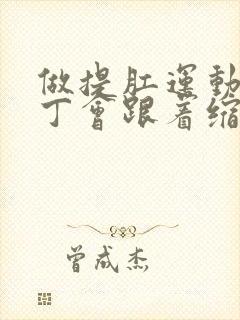 做提肛运動
丁會跟着缩
曾成杰